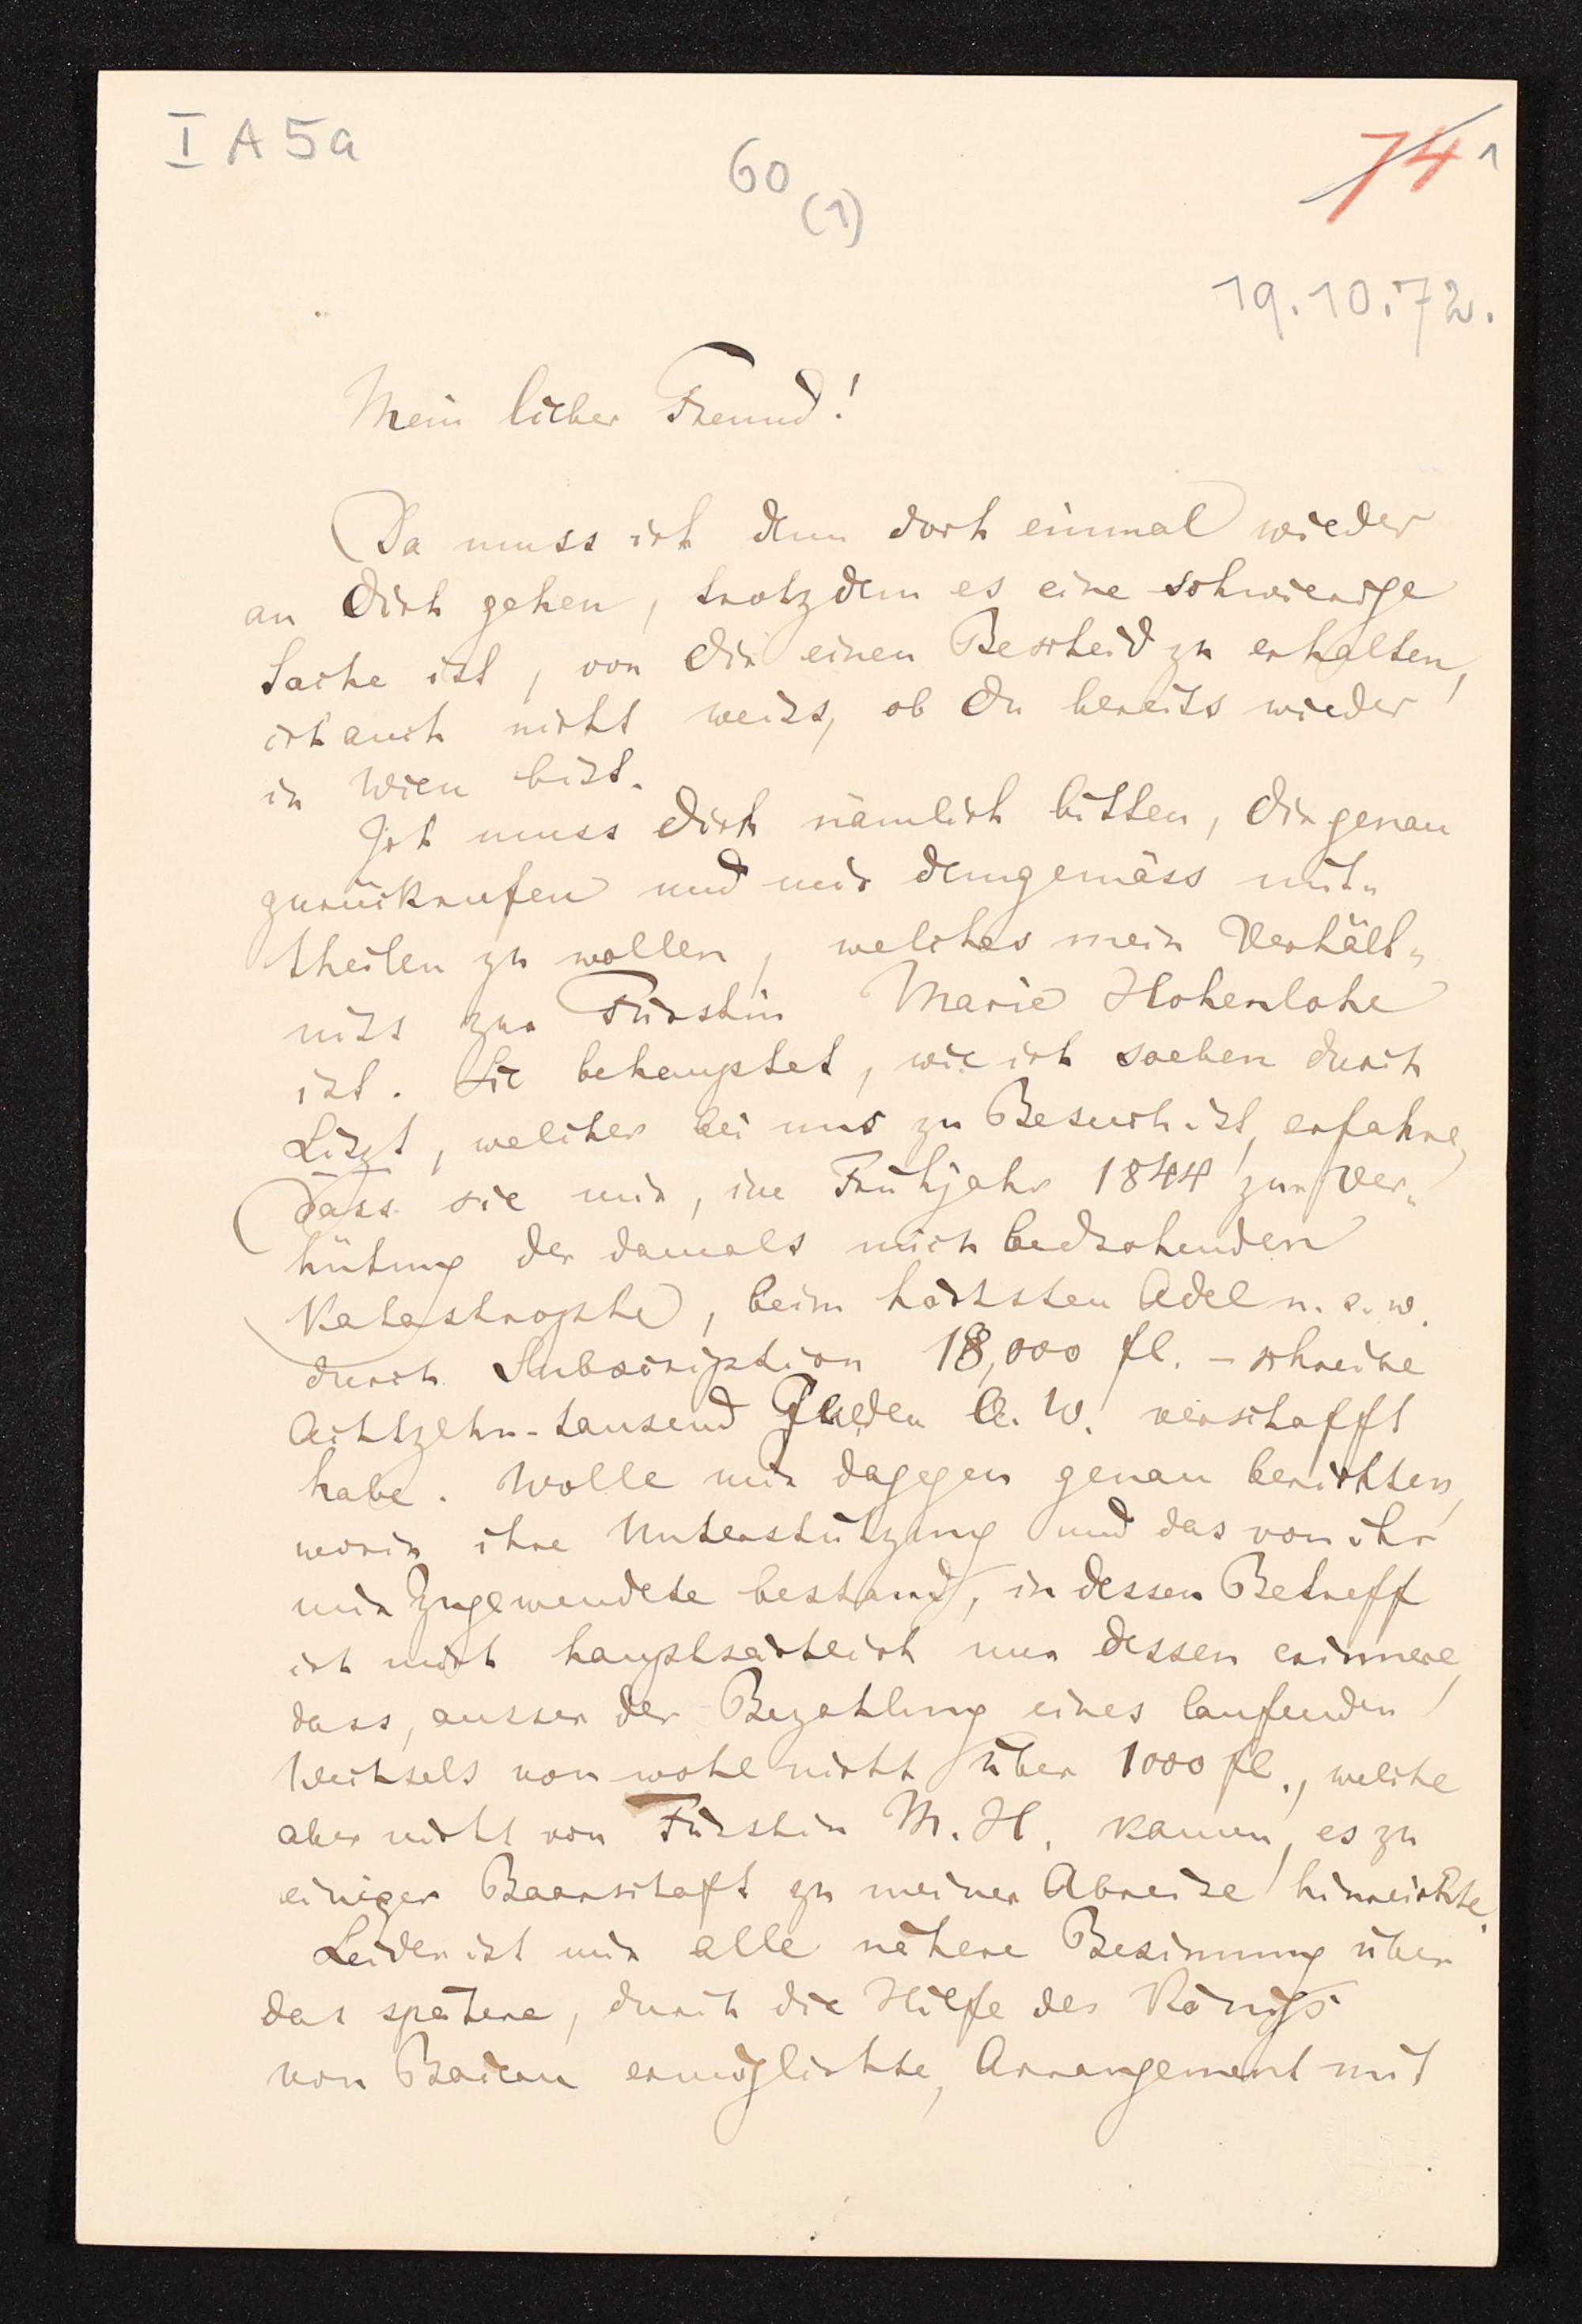 I A 5a
60
(1)
74
1
19.10.72.
Mein lieber Freund!
Da muss ich denn doch einmal wieder
an Dich gehen, trotzdem es eine schwierige
Sache ist, von Dir einen Bescheid zu erhalten,
ich auch nicht weiss, ob Du bereits wieder
in Wien bist.
Ich muss Dich nämlich bitten, Dir genau
zurückrufen und mir demgemäss mit„
theilen zu wollen, welches mein Verhält„
niss zur Fürstin Marie Hohenlohe
ist. Sie behauptet, wie ich soeben durch
Liszt, welcher bei uns zu Besuch ist, erfahre,
dass sie mir, im Frühjahr 1844 zur Ver„
hütung der damals mich bedrohenden
Katastrophe, beim höchsten Adel u. s. w.
durch Subscription 18,000 fl. – schreibe
Achtzehn-tausend Gulden Ö. W. verschafft
habe. Wolle mir dagegen genau berichten,
worin ihre Unterstützung und das von ihr
mir Zugewendete bestand, in dessen Betreff
ich mich hauptsächlich nur dessen erinnere,
dass, ausser der Bezahlung eines laufenden
Wechsels von wohl nicht über 1000 fl., welche
aber nicht von Fürstin M. H. kamen, es zu
einiger Baarschaft zu meiner Abreise hinreichte.
Leider ist mir alle nähere Besinnung über
das spätere, durch die Hilfe des Königs
von Baiern ermöglichte, Arrangement mit